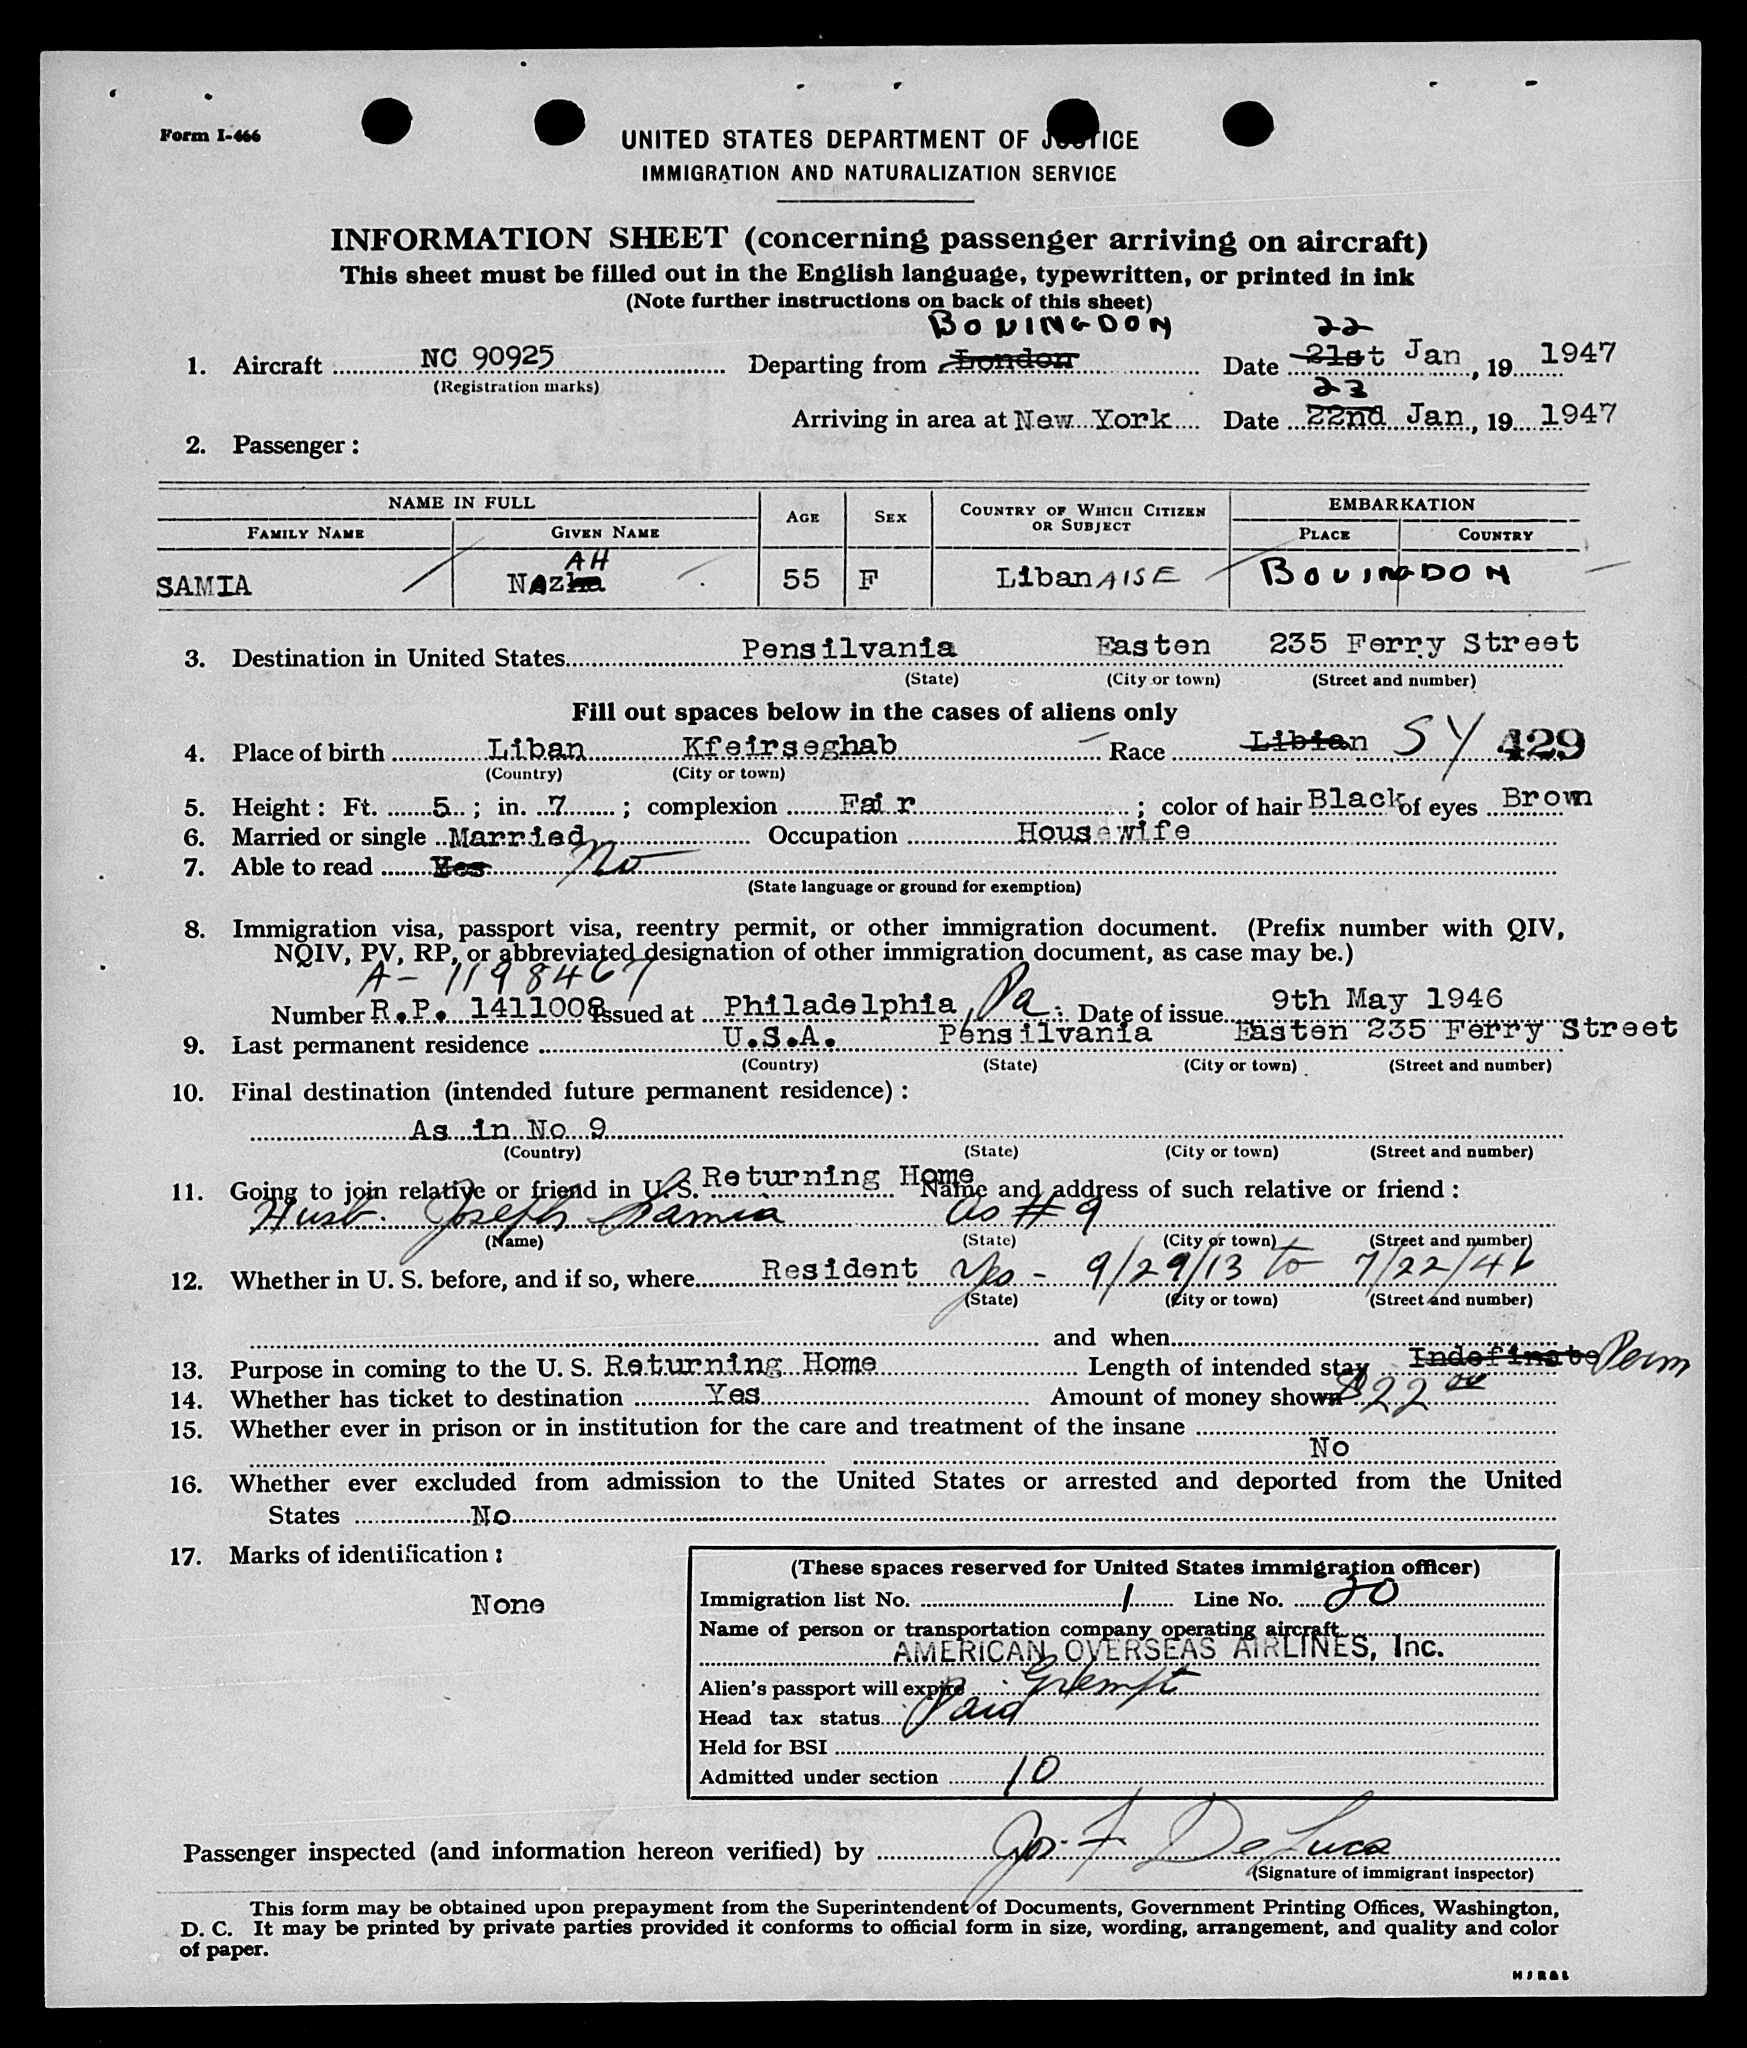 Form I-466
UNITED STATES DEPARTMENT OF JUSTICE
IMMIGRATION AND NATURALIZATION SERVICE
INFORMATION SHEET (concerning passenger arriving on aircraft)
This sheet must be filled out in the English language, typewritten, or printed in ink
(Note further instructions on back of this sheet)
BOVINGDON 22
1. Aircraft NC 90925 Departing from London Date 21st Jan, 19 1947
(Registration marks) 23
Arriving in area at New York Date 22nd Jan, 19 1947
2. Passenger:
NAME IN FULL AGE SEX COUNTRY OF WHICH CITIZEN OR SUBJECT EMBARKATION
FAMILY NAME GIVEN NAME PLACE COUNTRY
AH
SAMIA NAzha 55 F LibanAISE BOVINGDON
3. Destination in United States Pensilvania Easten 235 Ferry Street
(State) (City or town) (Street and number)
Fill out spaces below in the cases of aliens only
4. Place of birth Liban Kfeirseghab Race Libian SY 429
(Country) (City or town)
5. Height: Ft. 5; in. 7; complexion Fair; color of hair Black of eyes Brown
6. Married or single Married Occupation Housewife
7. Able to read Yes No
(State language or ground for exemption)
8. Immigration visa, passport visa, reentry permit, or other immigration document. (Prefix number with QIV,
NQIV, PV, RP, or abbreviated designation of other immigration document, as case may be.)
A-1198467
Number R.P. 1411008 Issued at Philadelphia, Pa.; Date of issue 9th May 1946
9. Last permanent residence U.S.A. Pensilvania Easten 235 Ferry Street
(Country) (State) (City or town) (Street and number)
10. Final destination (intended future permanent residence):
As in No 9
(Country) (State) (City or town) (Street and number)
11. Going to join relative or friend in U. S. Returning Home Name and address of such relative or friend:
Husb. Joseph Samia as #9
(Name) (State) (City or town) (Street and number)
12. Whether in U. S. before, and if so, where Resident Yes - 9/29/13 to 7/22/46
(State) (City or town) (Street and number)
and when
13. Purpose in coming to the U. S. Returning Home Length of intended stay Indefinate Perm
14. Whether has ticket to destination Yes Amount of money shown $22.00
15. Whether ever in prison or in institution for the care and treatment of the insane
No
16. Whether ever excluded from admission to the United States or arrested and deported from the United
States No
17. Marks of identification:
None
(These spaces reserved for United States immigration officer)
Immigration list No. 1 Line No. 20
Name of person or transportation company operating aircraft
AMERICAN OVERSEAS AIRLINES, Inc.
Alien's passport will expire Exempt
Head tax status Paid
Held for BSI
Admitted under section 10
Passenger inspected (and information hereon verified) by Jos. F. DeLuca
(Signature of immigrant inspector)
This form may be obtained upon prepayment from the Superintendent of Documents, Government Printing Offices, Washington,
D. C. It may be printed by private parties provided it conforms to official form in size, wording, arrangement, and quality and color
of paper.